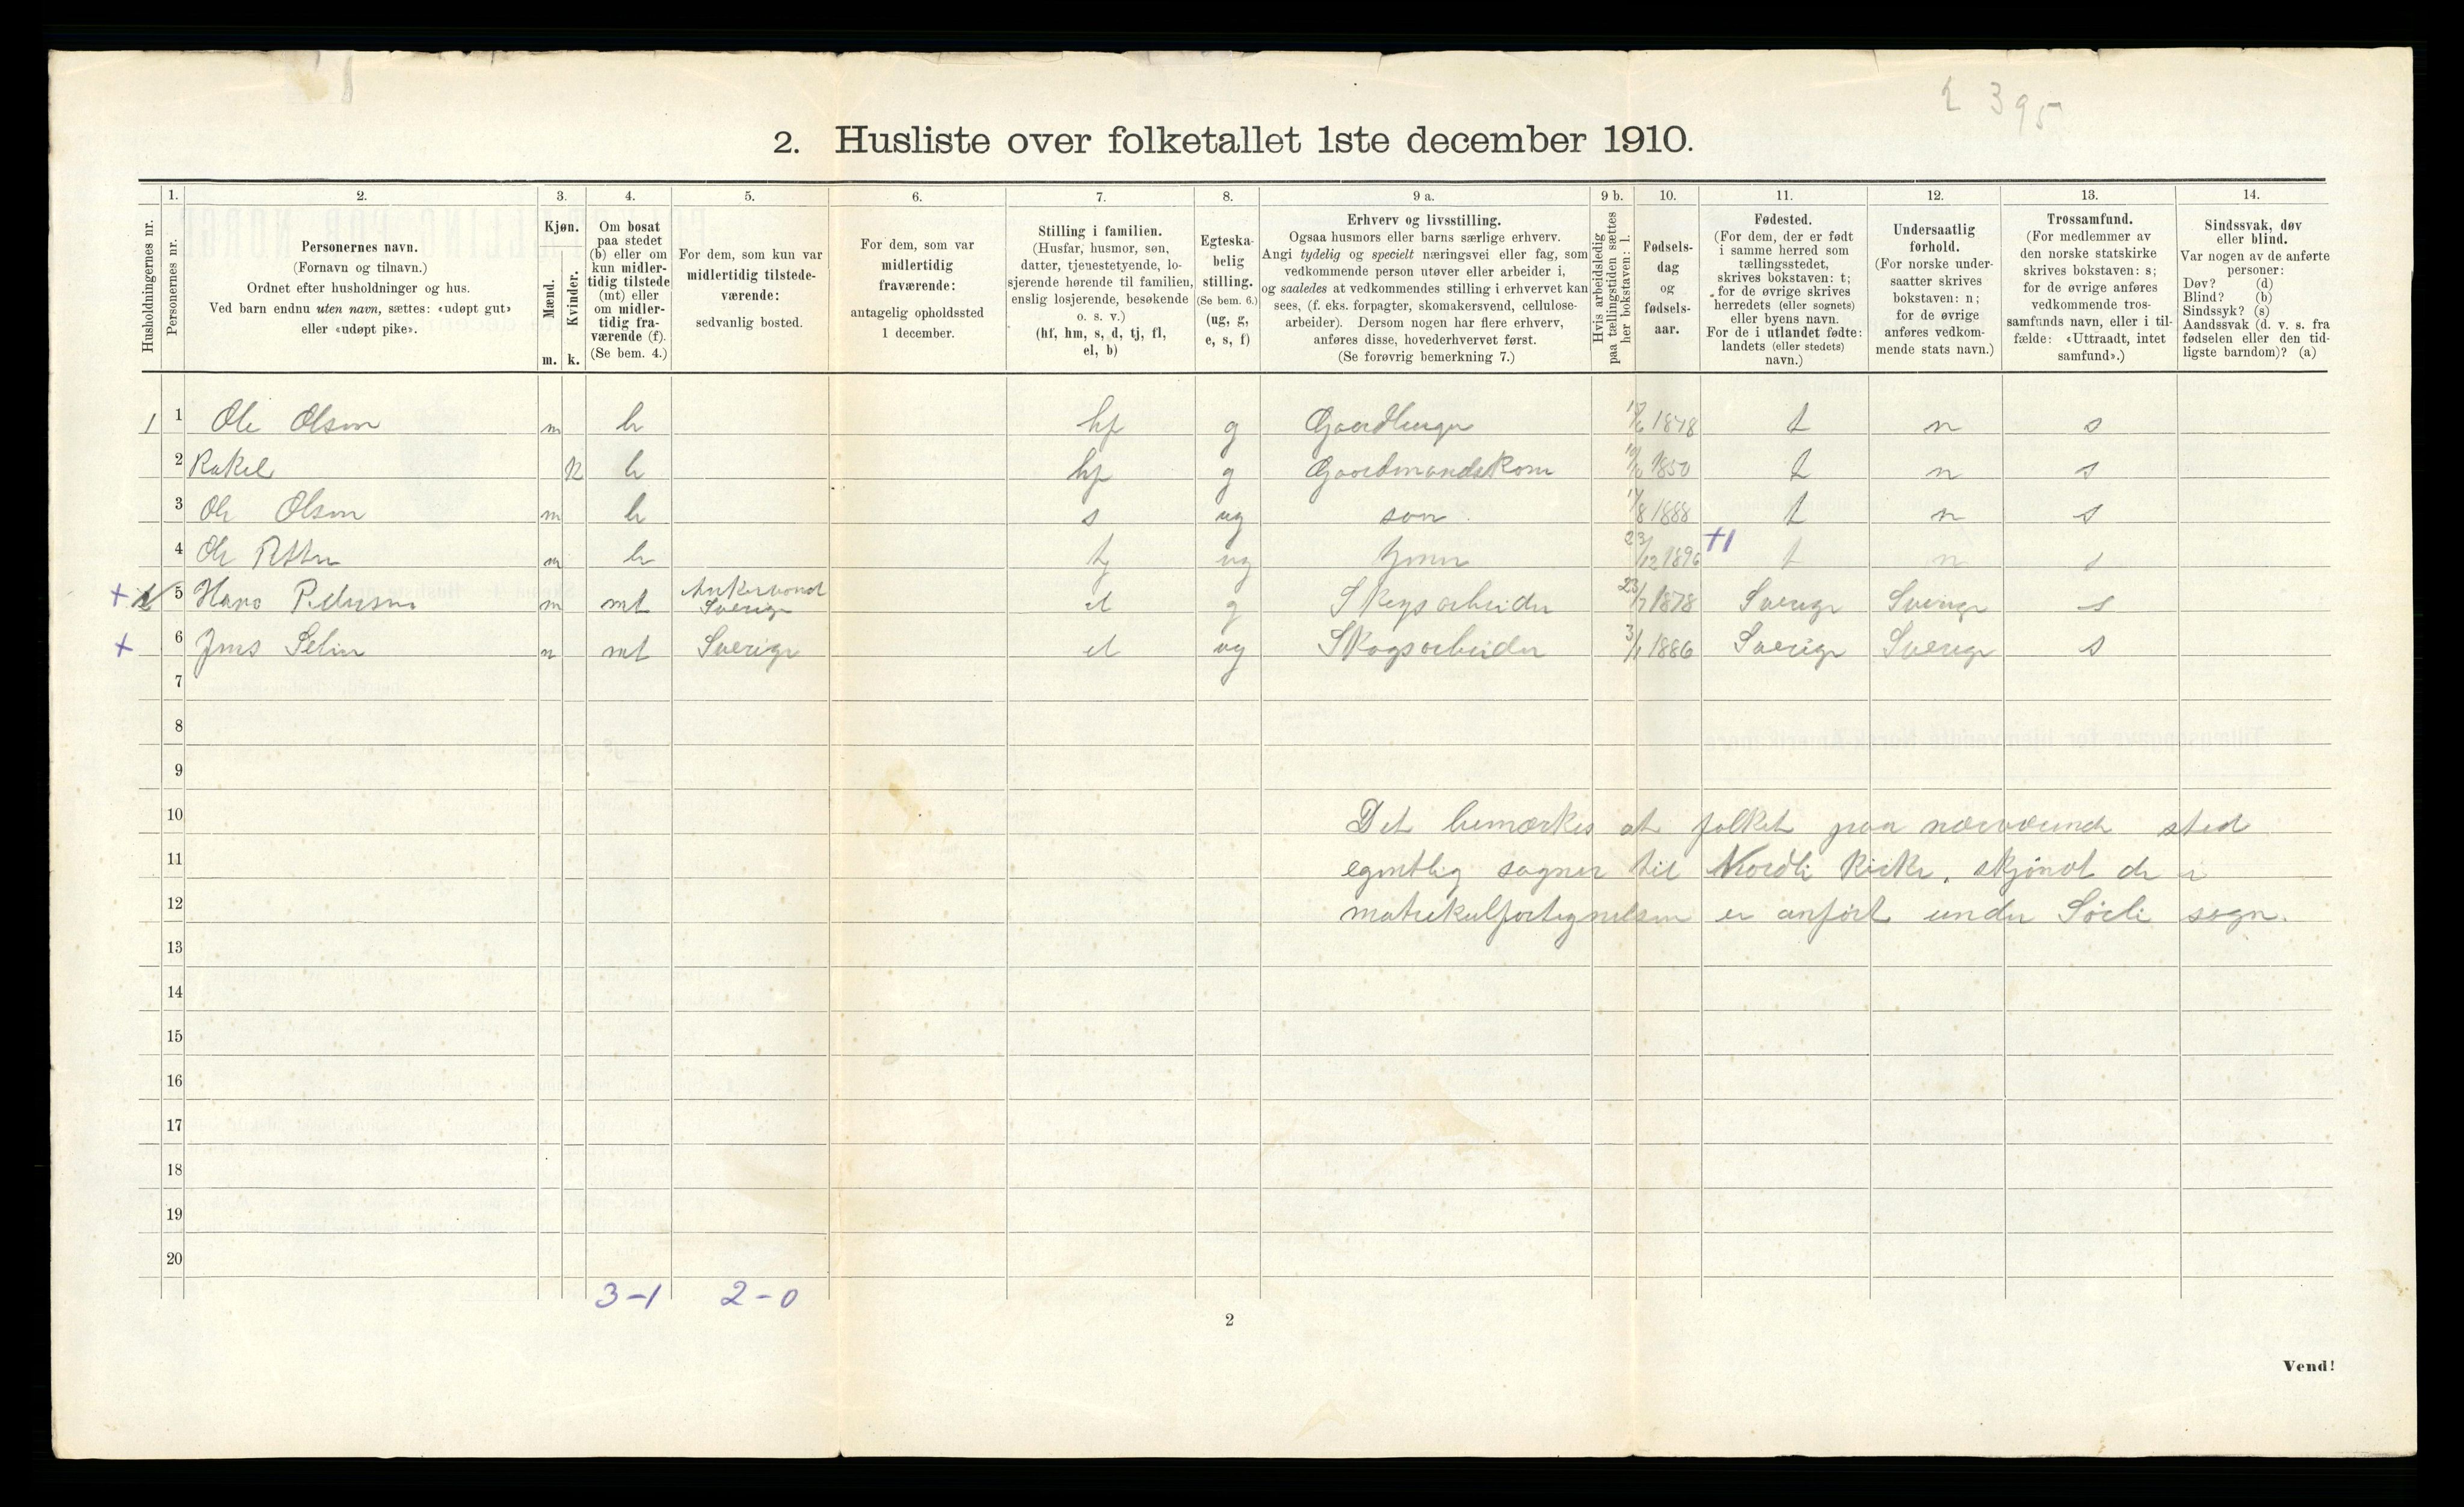 2 395
2. Husliste over folketallet 1ste december 1910.
Husholdningernes nr.
1.
Personernes nr.
2.
Personernes navn.
(Fornavn og tilnavn.)
Ordnet efter husholdninger og hus.
Ved barn endnu uten navn, sættes: «udøpt gut»
eller «udøpt pike».
3.
Kjøn.
Mænd.
Kvinder.
m. k.
4.
Om bosat
paa stedet
(b) eller om
kun midler-
tidig tilstede
(mt) eller
om midler-
tidig fra-
værende (f).
(Se bem. 4.)
5.
For dem, som kun var
midlertidig tilstede-
værende:
sedvanlig bosted.
6.
For dem, som var
midlertidig
fraværende:
antagelig opholdssted
1 december.
7.
Stilling i familien.
(Husfar, husmor, søn,
datter, tjenestetyende, lo-
sjerende hørende til familien,
enslig losjerende, besøkende
o. s. v.)
(hf, hm, s, d, tj, fl,
el, b)
8.
Egteska-
belig
stilling.
(Se bem. 6.)
(ug, g,
e, s, f)
9 a.
Erhverv og livsstilling.
Ogsaa husmors eller barns særlige erhverv.
Angi tydelig og specielt næringsvei eller fag, som
vedkommende person utøver eller arbeider i,
og saaledes at vedkommendes stilling i erhvervet kan
sees, (f. eks. forpagter, skomakersvend, cellulose-
arbeider). Dersom nogen har flere erhverv,
anføres disse, hovederhvervet først.
(Se forøvrig bemerkning 7.)
9 b.
Hvis arbeidsledig
paa tællingstiden sættes
her bokstaven: l.
10.
Fødsels-
dag
og
fødsels-
aar.
11.
Fødested.
(For dem, der er født
i samme herred som
tællingsstedet,
skrives bokstaven: t;
for de øvrige skrives
herredets (eller sognets)
eller byens navn.
For de i utlandet fødte:
landets (eller stedets)
navn.)
12.
Undersaatlig
forhold.
(For norske under-
saatter skrives
bokstaven: n;
for de øvrige
anføres vedkom-
mende stats navn.)
13.
Trossamfund.
(For medlemmer av
den norske statskirke
skrives bokstaven: s;
for de øvrige anføres
vedkommende tros-
samfunds navn, eller i til-
fælde: «Uttraadt, intet
samfund».)
14.
Sindssvak, døv
eller blind.
Var nogen av de anførte
personer:
Døv? (d)
Blind? (b)
Sindssyk? (s)
Aandssvak (d. v. s. fra
fødselen eller den tid-
ligste barndom)? (a)
1 1 Ole Olsen m b hf g 1848 t n s
2 Rakel k b hf g Gaardmandskone 1850 t n s
3 Ole Olsen m b s ug søn 17/8 1888 t n s
4 Ole Petter m b tj ug 23/12 1896 +1 t n s
+ 5 Hans Pedersen m mt Sverige el g Skogsarbeider 23/7 1878 Sverige Sverige s
+ 6 Jens Selin m mt Sverige el ug Skogsarbeider 3/1 1886 Sverige Sverige s
7
8
9
10 Det bemærkes at folket paa nærværende sted
11 egentlig sogner til Nordli kirke, skjønt de i
12 matrikulfortegnelsen er anført under Sørli sogn.
13
14
15
16
17
18
19
20
3-1 2-0
2
Vend!